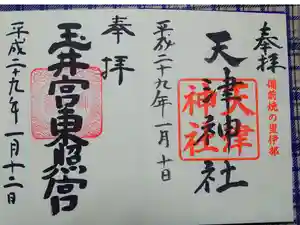 奉拝
天津神社
天津神社
備前焼の里伊部
平成二十九年一月十日
奉拝
玉井宮東照宮
平成二十九年一月十二日